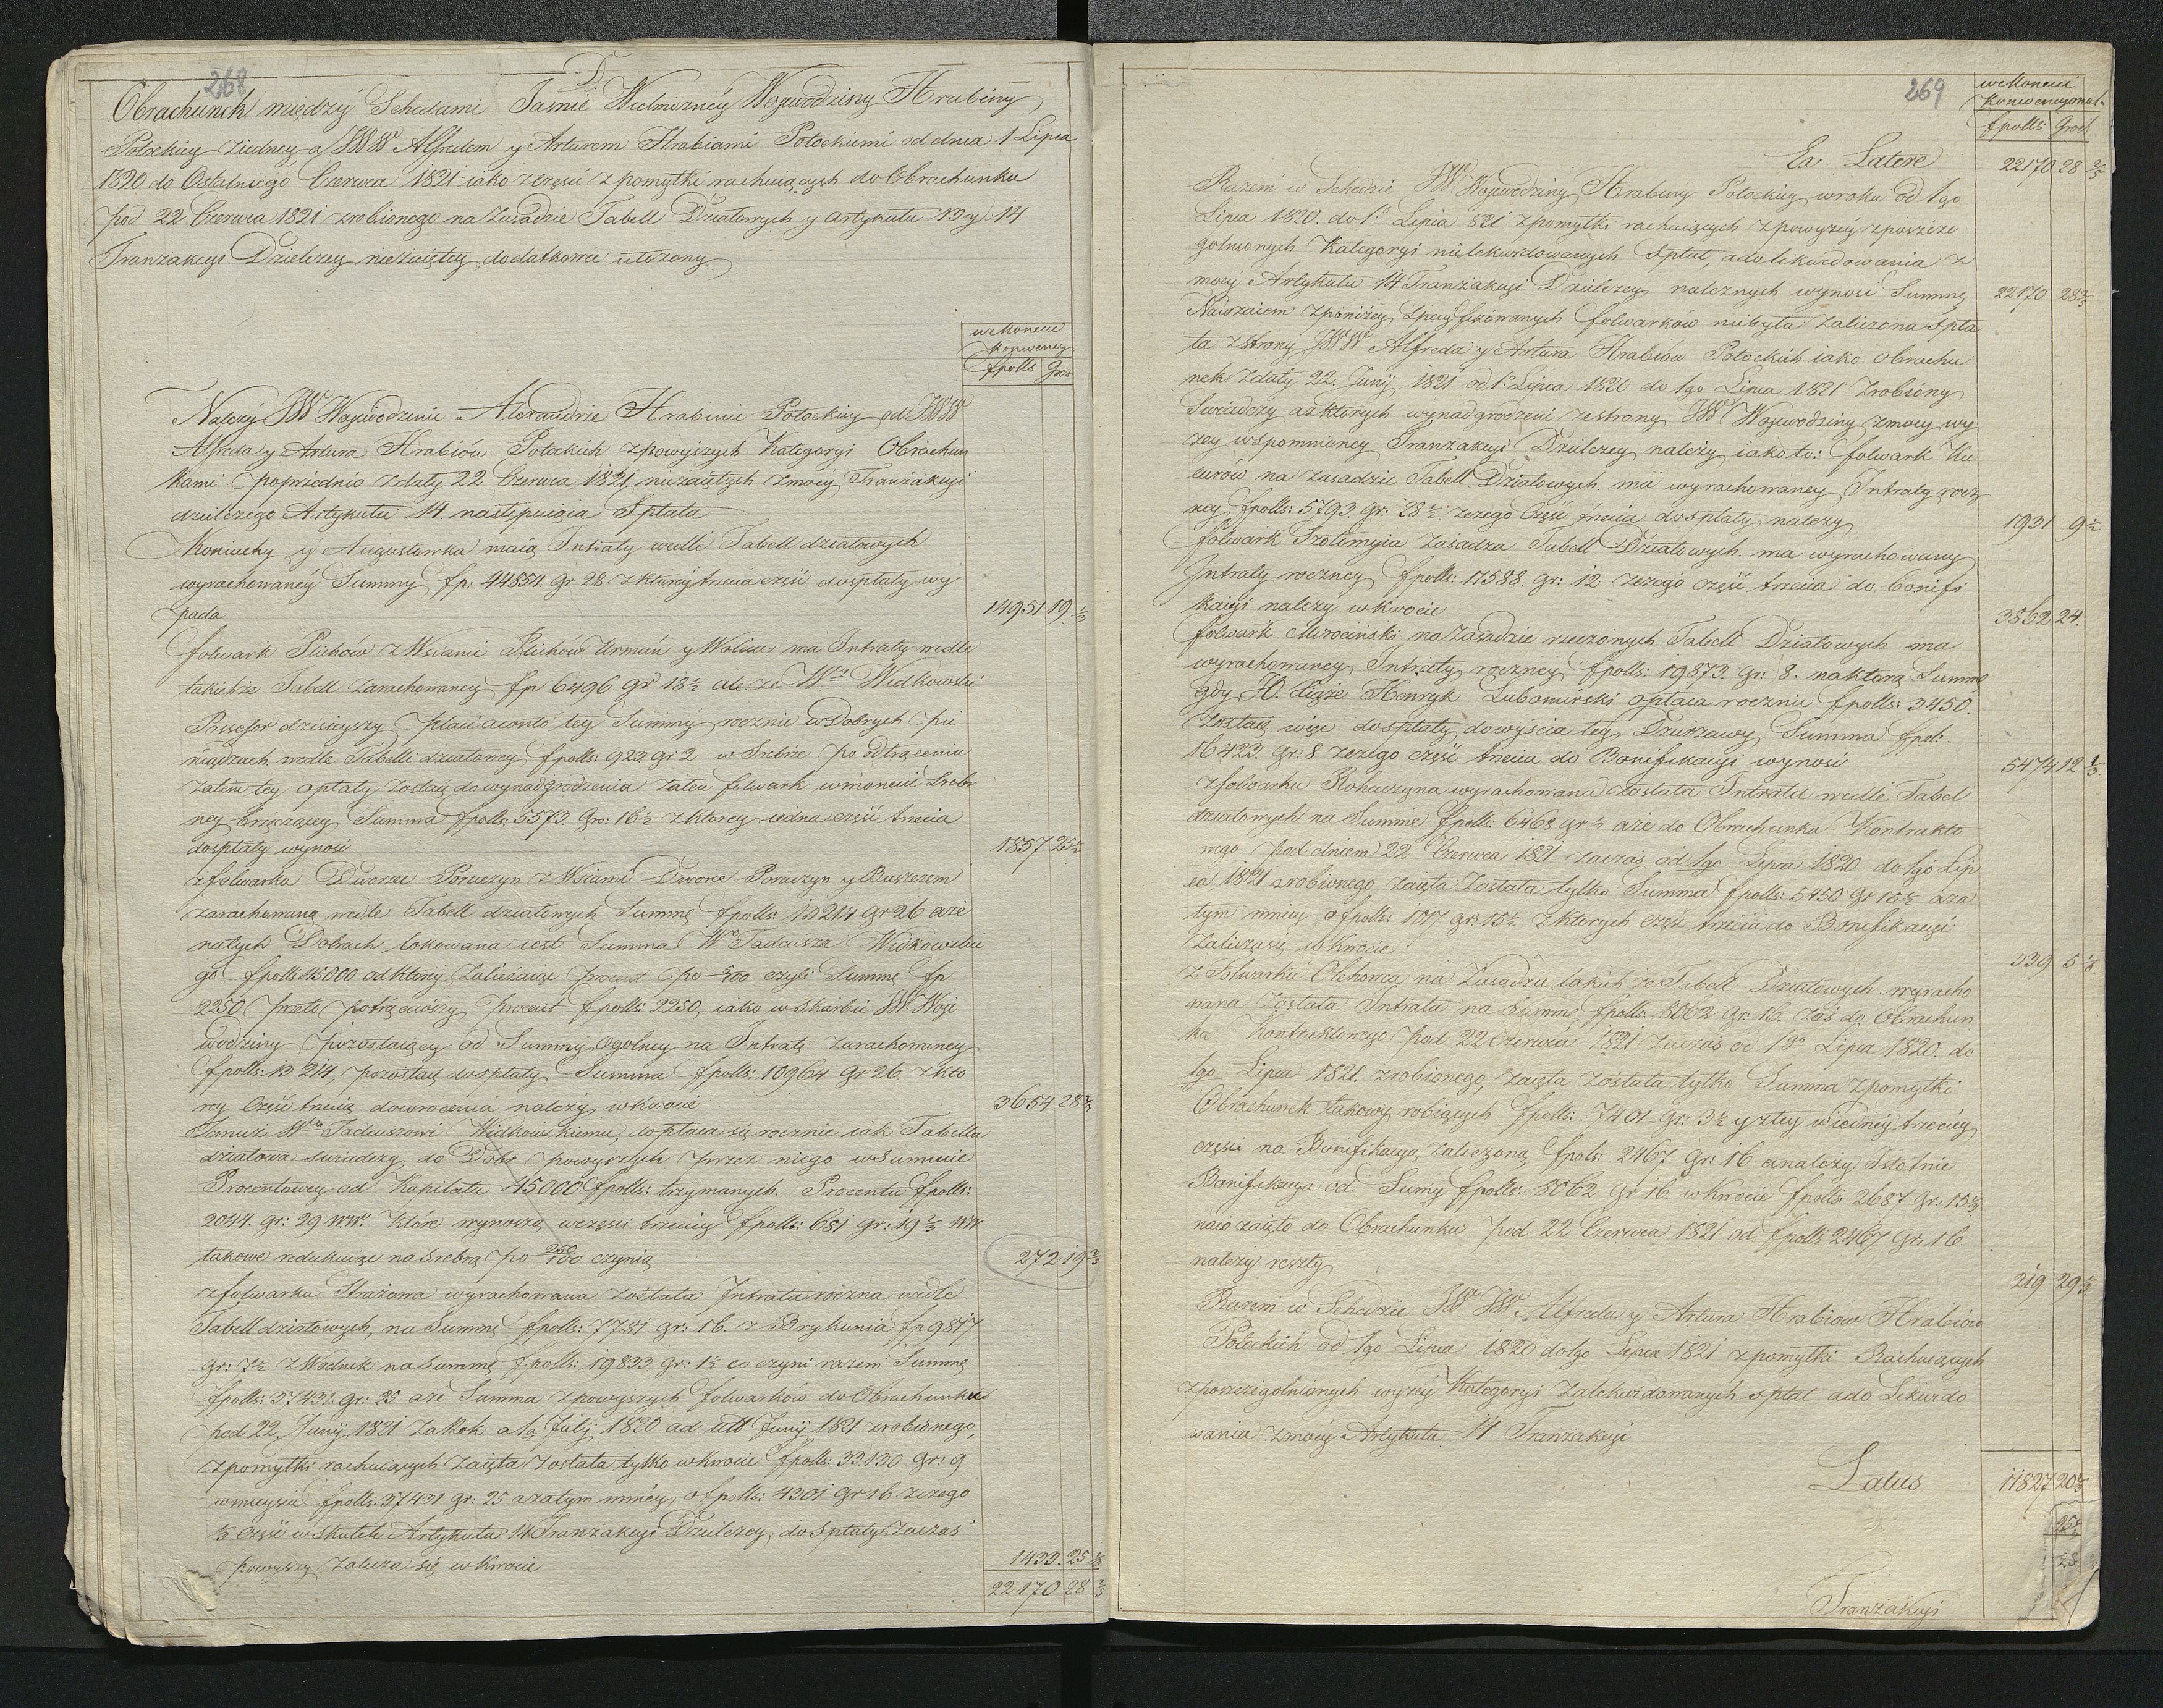 268
D
Obrachunek między Schedami Jaśnie Wielmożnéy Wojewodziny Hrabiny
Potockiey ziedney a JWW Alfredem y Arturem Hrabiami Potockiemi od dnia 1 Lipca
1820 do Ostatniego Czerwca 1821 iako zczęści zpomyłki rachuiących do Obrachunku
pod 22 Czerwca 1821 zrobionego na zasadzie Tabell Działowych y Artykułu 13 y 14
Tranzakcyi Dzielczey niezaiętey dodatkowie ułożony
w Monecie
Konwency
fpolls Gro
Należy JW Wojewodzinie Alexandrze Hrabinie Potockiey od JWW
Alfreda y Artura Hrabiów Potockich zpowyższych Kategoryi Obrachun
kami poprzednio zdaty 22 Czerwca 1821 niezaiętych zmocy Tranzakcyi
dzielczego Artykułu 14 następuiąca Spłata
Koniuchy y Augustowka maią Intraty wedle Tabell działowych
wyrachowanéy Summy fp: 44854 gr 28 zktoréy trzecia część dospłaty wy
pada 14951 19 1/3
folwark Plichów zWsiami Plichów Urmań y Wolica ma Intraty wedle
takichże Tabell zarachowaney fp 6496 gr 18 1/2 ale że Wny Widkowski
Possessor dzisieyszy płaci aconto tey Summy rocznie wDobrych pie
niądzach wedle Tabelli działowey fpolls: 923 gr 2 w Srebrze po odtrąceniu
zatem tey opłaty zostaie do wynadgrodzenia zaten folwark wmonecie Srebr
ney brzęczącey Summa fpolls: 5573 Gro: 16 1/2 zktorey iedna część trzecia
dospłaty wynosi 1857 25 1/2
zfolwarku Dworce Poruczyn zWsiami Dworce Poruczyn y Buszczem
zarachowaną wedle Tabell działowych Summę fpolls: 13214 gr 26 aże
natych Dobrach lokowana iest Summa Wo Tadeusza Widkowskie
go fpolls 45000 od ktorey zaliczaiąc procent po 5/100 czyli Summę fp
2250 przeto potrąciwszy procent fpolls 2250, iako w Skarbie JW Woje
wodziny pozostaiący od Summy Ogolney na Intratę zarachowaney
fpolls: 13214, pozostaie dospłaty Summa fpolls: 10964 gr 26 zkto
rey Część trzecia dowrocenia należy wkwocie 3654 28 2/3
Temuż Wo Tadeuszowi Widkowskiemu, dopłaca się rocznie iak Tabella
działowa świadczy, do Dobr powyższych przez niego wSummie
Procentowey od Kapitału 45000 fpolls: trzymanych. Procentu fpolls:
2044. gr: 29 w.w. które wynoszą wczęści trzeciey fpolls: 681 gr: 19 2/3 ww
takowe redukuiąc na Srebro po 250/100 czynią 272 19 2/3
zfolwarku Strażowa wyrachowana została Intrata roczna wedle
Tabell działowych, na Summę fpolls: 7781 gr: 16. z Brykunia fp 9817
gr: 7 1/2 z Wodnik na Summę fpolls: 19833 gr: 1 1/2 co czyni razem Summę
fpolls: 37431. gr: 25 aże Summa zpowyższych folwarków do Obrachunku
pod 22. Juny 1821 za Rok a 1a July 1820 ad ult Juny 1821 zrobionego,
zpomyłki rachuiących zaięta została tylko wkwocie fpolls: 33130 gr: 9
wmieysce fpolls: 37431 gr: 25 azatym mniéy o fpolls: 4301 gr 16 zczego
1/3 Część w skutek Artykułu 14 Tranzakcyi Dzielczey do Spłaty zaczas
powyższy zalicza się w kwocie 1433. 25 1/3
22170 28 2/3
269
w Monecie
Konwencyonal
fpolls Grosz
Ea Latere 22170 28 2/3
Razem w Schedzie JW Wojewodziny Hrabiny Potockiey wroku od 1go
Lipca 1820. do 1o Lipca 821 zpomyłki rachuiących zpowyżey zposzcze
golnionych Kategoryi nielekwidowanych Spłat, ado likwidowania z
mocy Artykułu 14 Tranzakcyi Dzielczey należnych wynosi Summę 22170 28 2/3
Nawzaiem zponiżey Specyfikowanych folwarków niebyła zaliczona Spła
ta zstrony JWW Alfreda y Artura Hrabiów Potockich iako Obrachu
nek zdaty 22. Juny 1821 od 1o Lipca 1820 do 1go Lipca 1821 zrobiony
świadczy, azktorych wynadgrodzeni zestrony JW Wojewodziny zmocy wy
żey wspomnioney Tranzakcyi Dzielczey należy, iako to: folwark Ku
curów na zasadzie Tabell Działowych ma wyrachowaney Intraty rocz
ney fpolls: 5793. gr: 28 1/2 zczego Część trzecia dospłaty należy 1931 9 1/2
folwark Szołomyia zasadza Tabell Działowych. ma wyrachowaney
Intraty roczney fpolls: 11588. gr: 12 zczego część trzecia do bonifi
kacyi należy wkwocie 3862 24.
folwark Mrociński na zasadzie rzeczonych Tabell Działowych ma
wyrachowaney Intraty roczney fpolls: 19873. gr: 8. naktorą Summę
gdy H. Xiąże Henryk Lubomirski opłaca rocznie fpolls: 3450.
Zostaie więc dospłaty dowyiścia tey Dzierżawy Summa fpol:
16423. gr: 8 zczego część trzecia do Bonifikacyi wynosi 5474 12 1/3
zfolwarku Rohaczyna wyrachowana została Intrata wedle Tabel
działowych na Summę fpolls: 6468 gr 1/2 aże do Obrachunku Kontrakto
wego pod dniem 22 Czerwca 1821 zaczas od 1go Lipca 1820 do 1go Lip
ca 1821 zrobionego zaięta została tylko Summa fpolls: 5450 gr 15 1/2 aza
tym mniey o fpolls: 1017 gr: 15 1/2 zktorych część trzecia do Bonifikacyi
zaliczasię wkwocie 339 5 1/6
z Folwarku Olchowca na Zasadzie takich że Tabell Działowych wyracho
wana została Intrata na Summę fpolls: 8062 gr: 16. zaś do Obrachun
ku Kontraktowego pod 22 Czerwca 1821 zaczas od 1go Lipca 1820. do
1go Lipca 1821. zrobionego, zaięta została tylko Summa zpomyłki
Obrachunek takowy robiących fpolls: 7401 gr: 3 1/2 y ztey wiedney trzeciey
części na Bonifikacyą zaliczoną fpols: 2467 gr: 16 anależy Istotnie
Bonifikacya od Sumy fpolls: 8062 gr 16. wkwocie fpolls 2687 gr: 15 1/3
naco zaięto do Obrachunku pod 22 Czerwca 1821 od fpolls 2467 gr: 16.
należy reszty 219 29 1/3
Razem w Schedzie JW JW Alfreda y Artura Hrabiów Hrabiów
Potockich od 1go Lipca 1820 do 1go Lipca 1821 zpomyłki Rachuiących
zposzczegolnionych wyżéy Kategoryi zalekwidowanych spłat ado Lekwido
wania zmocy Artykułu 14 Tranzakcyi
Latus 11827 20 1/3
25
28
Tranzakcyi